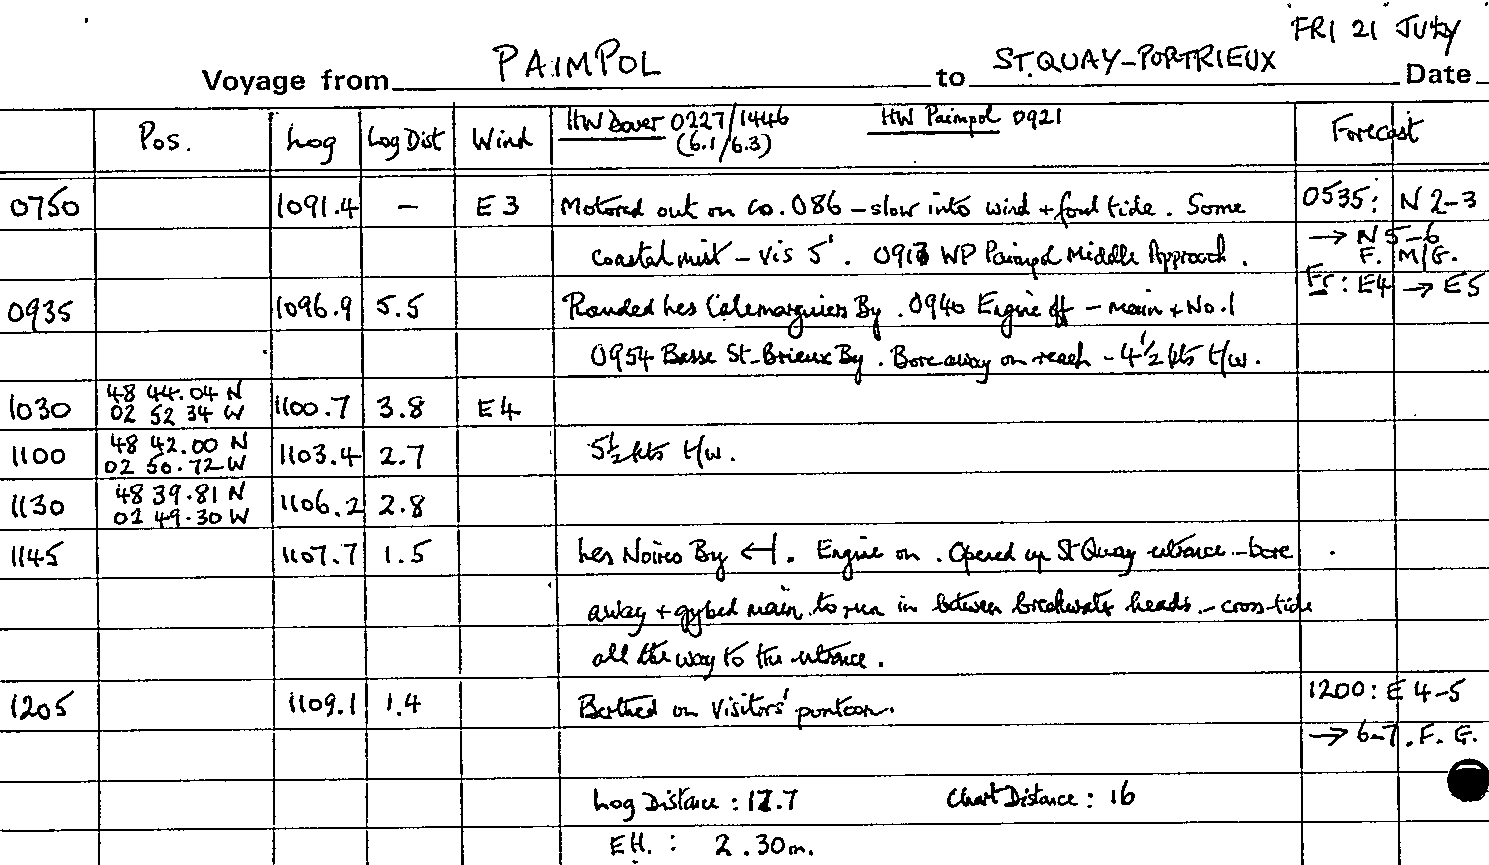 FRI 21 JULY
Voyage from PAIMPOL to ST.QUAY-PORTRIEUX Date
Pos. Log Log Dist Wind HW Dover 0227/1446 HW Paimpol 0921 Forecast
(6.1/6.3)
0750 1091.4 — E3 Motored out on co. 086 – slow into wind + foul tide. Some 0535: N 2-3
coastal mist – vis 5'. 0913 WP Paimpol Middle Approach. → N 5-6
F. M/G.
Fr: E4 → E5
0935 1096.9 5.5 Rounded Les Calemarguiers By. 0940 Engine off – main + No.1
0954 Basse St-Brieux By. Bore away on reach – 4½ kts t/w.
1030 48 44.04 N 02 52 34 W 1100.7 3.8 E4
1100 48 42.00 N 02 50.72 W 1103.4 2.7 5½ kts t/w.
1130 48 39.81 N 02 49.30 W 1106.2 2.8
1145 1107.7 1.5 Les Noires By ←|. Engine on. Opened up St Quay entrance – bore
away + gybed main to run in between breakwater heads – cross-tide
all the way to the entrance.
1205 1109.1 1.4 Berthed on visitors' pontoon. 1200: E 4-5
→ 6-7. F. G.
Log Distance: 17.7 Chart Distance: 16
EH.: 2.30m.